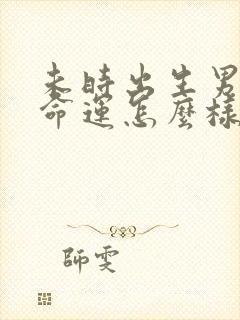 未時出生男
命運怎麼樣
師雯